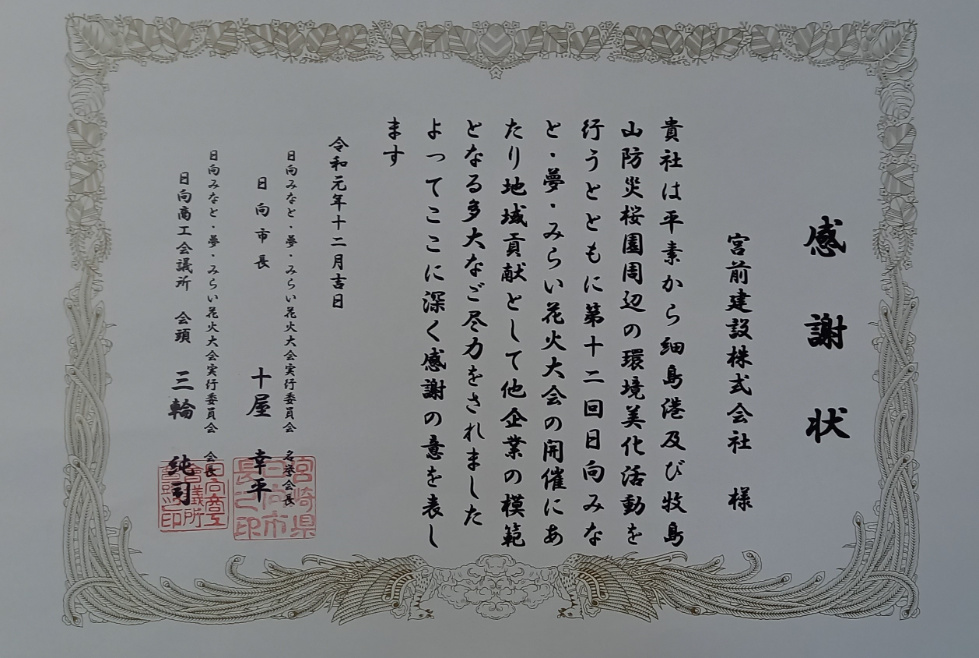 感謝状
宮前建設株式会社 様
貴社は平素から細島港及び牧島
山防災桜園周辺の環境美化活動を
行うとともに第十二回日向みな
と・夢・みらい花火大会の開催にあ
たり地域貢献として他企業の模範
となる多大なご尽力をされました
よってここに深く感謝の意を表し
ます
令和元年十二月吉日
日向みなと・夢・みらい花火大会実行委員会 名誉会長
日向市長 十屋 幸平
日向みなと・夢・みらい花火大会実行委員会 会長
日向商工会議所 会頭 三輪 純司
宮崎県
日向市
長之印